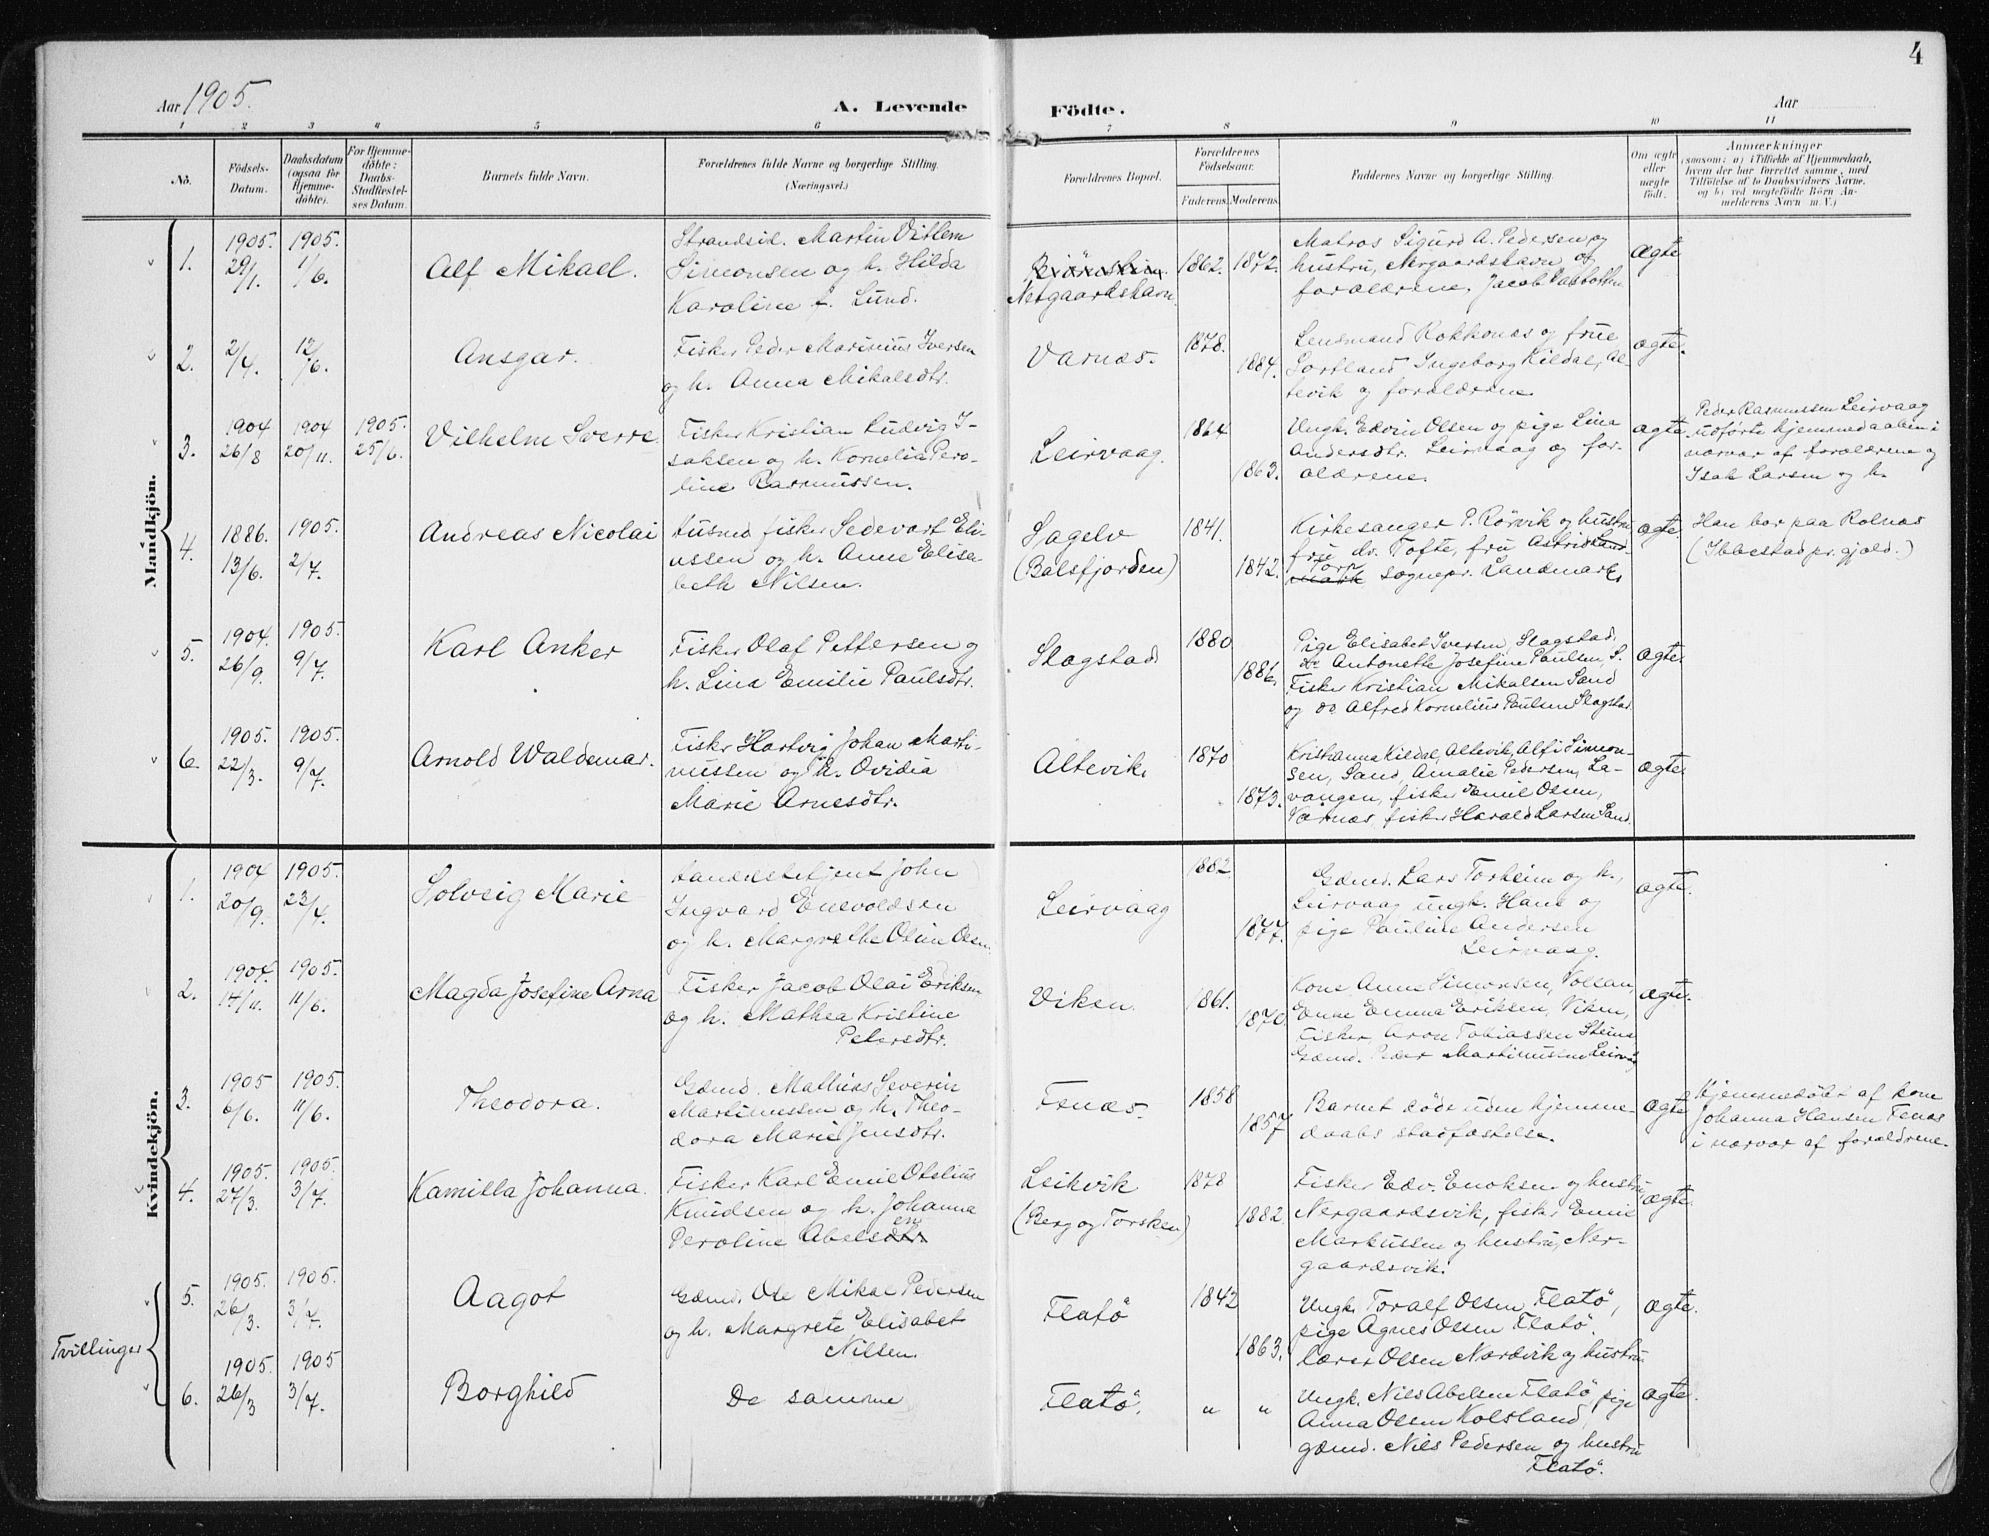 4
Aar 1905.
A. Levende Födte.
Aar
1 2 3 4 5 6 7 8 9 10 11
No.
Födsels-
Datum.
Daabsdatum
(ogsaa for
Hjemme-
döbte).
For Hjemme-
döbte:
Daabs-
Stadfæstel-
ses Datum.
Barnets fulde Navn.
Forældrenes fulde Navne og borgerlige Stilling.
(Næringsvei.)
Forældrenes Bopæl.
Forældrenes
Födselsaar.
Faderens. Moderens.
Faddernes Navne og borgerlige Stilling.
Om ægte
eller
uægte
födt.
Anmærkninger
(saasom: a) i Tilfælde af Hjemmedaab,
hvem der har forrettet samme, med
Tilföielse af to Daabsvidners Navne,
og b) ved uegtefödte Börn An-
melderens Navn m. V.)
Mandkjön.
1.
1905.
29/1.
1905.
1/6.
Alf Mikael.
Strandsid. Martin Vitlem
Simonsen og h. Hilda
Karoline f. Lund.
Nergaardshavn.
1862. 1872.
Matros Sigurd A. Pedersen og
hustru, Nergaardshavn og
forældrene. Jacob
ægte
2.
2/4.
12/6.
Ansgar.
Fisker Peder Marinius Iversen
og h. Anna Mikalsdtr.
Varnæs.
1878.
1884.
Lensmand Rokkonæs og frue
Sortland Ingeborg Kildal, Al-
tevik og forældrene.
ægte.
3.
1904
26/8
1904
20/11.
1905.
25/6.
Vilhelm Sverre
Fisker Kristian Ludvig I-
saksen og h. Kornelia Pero-
line Rasmussen.
Leirvaag.
1864
1863.
Ungk. Edvin Olsen og pige Lina
Andersdtr. Leirvaag og for-
ældrene.
ægte
Peder Rasmussen Leirvaag
udførte hjemmedaaben i
nærvær af forældrene og
Isak Larsen og h.
4.
1886.
13/6.
1905.
2/7.
Andreas Nicolai
Husmd. fisker Sedevart Eli-
ussen og h. Anne Elisa-
beth Nilsen.
Sagelv
(Balsfjorden)
1841.
1842.
Kirkesanger P. Rørvik og hustru
frue dv. Tofte, fru Astrid Land-
mark Torp sognepr. Landmark
ægte.
Han bor paa Rolnæs
(Ibbestad pr.gjæld.)
5.
1904.
26/9.
1905.
9/7.
Karl Anker
Fisker Olaf Pettersen og
h. Lina Emilie Paulsdtr.
Slagstad
1880
1886.
Pige Elisabet Iversen, Slagstad,
Antonette Josefine Paulsen, S.
Fisker Kristian Mikalsen Sand
og do Alfred Kornelius Paulsen Slagstad.
ægte
6.
1905.
22/3.
1905.
9/7.
Arnold Waldemar.
Fisker Hartvig Johan Marti-
nussen og h. Ovidia
Marie Arnesdtr.
Altevik
1870
1873.
Kristianna Kildal, Altevik, Alf Simon-
sen, Sand, Amalie Pedersen, La-
vangen, fisker Emil Olsen,
Varnæs, fisker Harald Larsen Sand.
ægte
Kvindekjön.
1.
1904
20/9.
1905.
23/4.
Solveig Marie
Handelsbetjent John
Ingvard Enevoldsen
og h. Margrethe Oline Olsen.
Leirvaag
1882
1877.
Gdmd. Lars Torheim og h.,
Leirvaag ungk. Hans og
pige Pauline Andersen
Leirvaag.
ægte.
2.
1904.
14/11.
1905.
11/6.
Magda Josefine Arna
Fisker Jacob Olai Eriksen
og h. Mathea Kristine
Petersdtr.
Viken
1861.
1870
Kone Anne Simonsen, Vollan
Enke Emma Eriksen, Viken,
Fisker Aron Tobiassen Steine
Gdmd. Peder Martinussen Leirvåg
ægte.
3.
1905
6/6.
1905.
11/6.
Theodora.
Gdmd. Mathias Severin
Martinussen og h. Theo-
dora Marie Jensdtr.
Finæs.
1858
1857
Barnet døde uden hjemme-
daabs stadfæstelse.
ægte
Hjemmedøbt af kone
Johanna Hansen Finæs
i nærvær af forældrene.
4.
1905.
27/3.
1905.
3/7.
Kamilla Johanna.
Fisker Karl Emil Otelius
Knudsen og h. Johanna
Peroline Abelsdtr en
Leikvik
(Berg og Torsken)
1878
1882.
Fisker Edv. Enoksen og hustru
Nergaardsvik, fisker Emil
Markussen og hustru, Ner-
gaardsvik.
ægte.
Tvillinger
5.
1905.
26/3.
1905.
3/7.
Aagot
Gdmd. Ole Mikal Pedersen
og h. Margrete Elisabet
Nilsen.
Flatö
1842
1863.
Ungk. Toralf Olsen Flatö,
pige Agnes Olsen Flatö,
lærer Olsen Nordvik og hustru
ægte.
6.
1905.
26/3
1905
3/7.
Borghild
De samme
Flatö.
" "
Ungk. Nils Abelsen Flatö, pige
Anna Olsen Kolsland,
gdmd. Nils Pedersen og hustru
Flatö.
ægte.